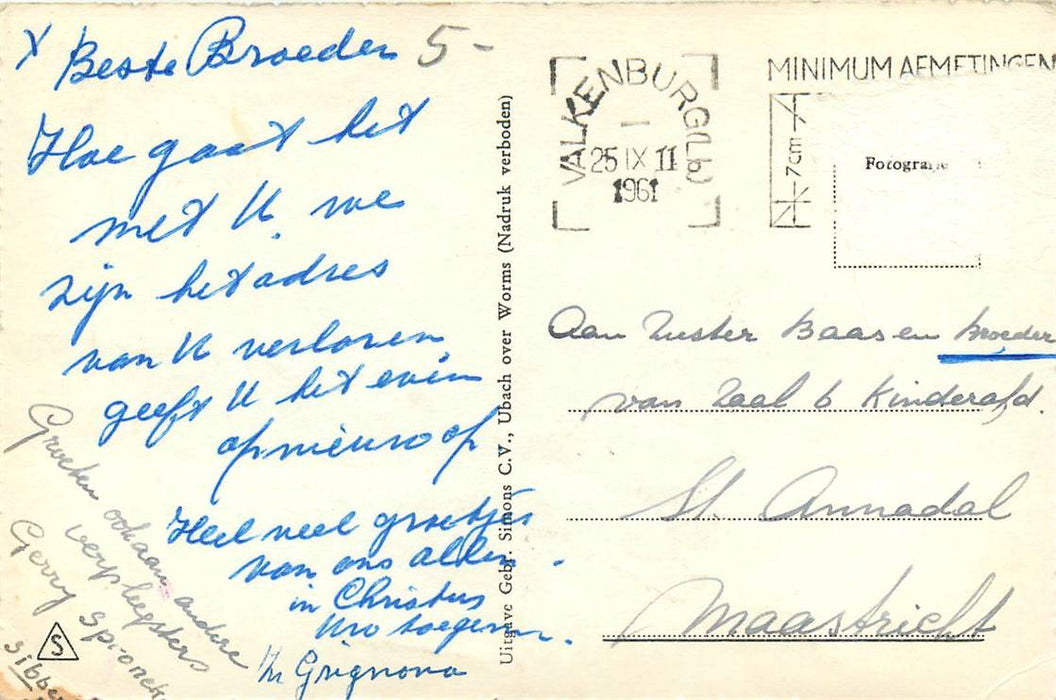 X Beste Broeder 5-
Hoe gaat het
met U. we
zijn het adres
van U verloren.
geeft U het even
opnieuw op
Heel veel groetjes
van ons allen.
in Christus
Uw toegene.
Grignova
Groeten ook aan andere
verpleegsters
Gerry
Sibbe
S
Uitgave Gebr. Simons C.V., Ubach over Worms (Nadruk verboden)
VALKENBURG (Lb)
25 IX 11
1961
MINIMUM AFMETINGEN
7 CM
Fotografie
Aan Zuster Baas en Broeder
van Zaal 6 Kinderafd.
St. Annadal
Maastricht